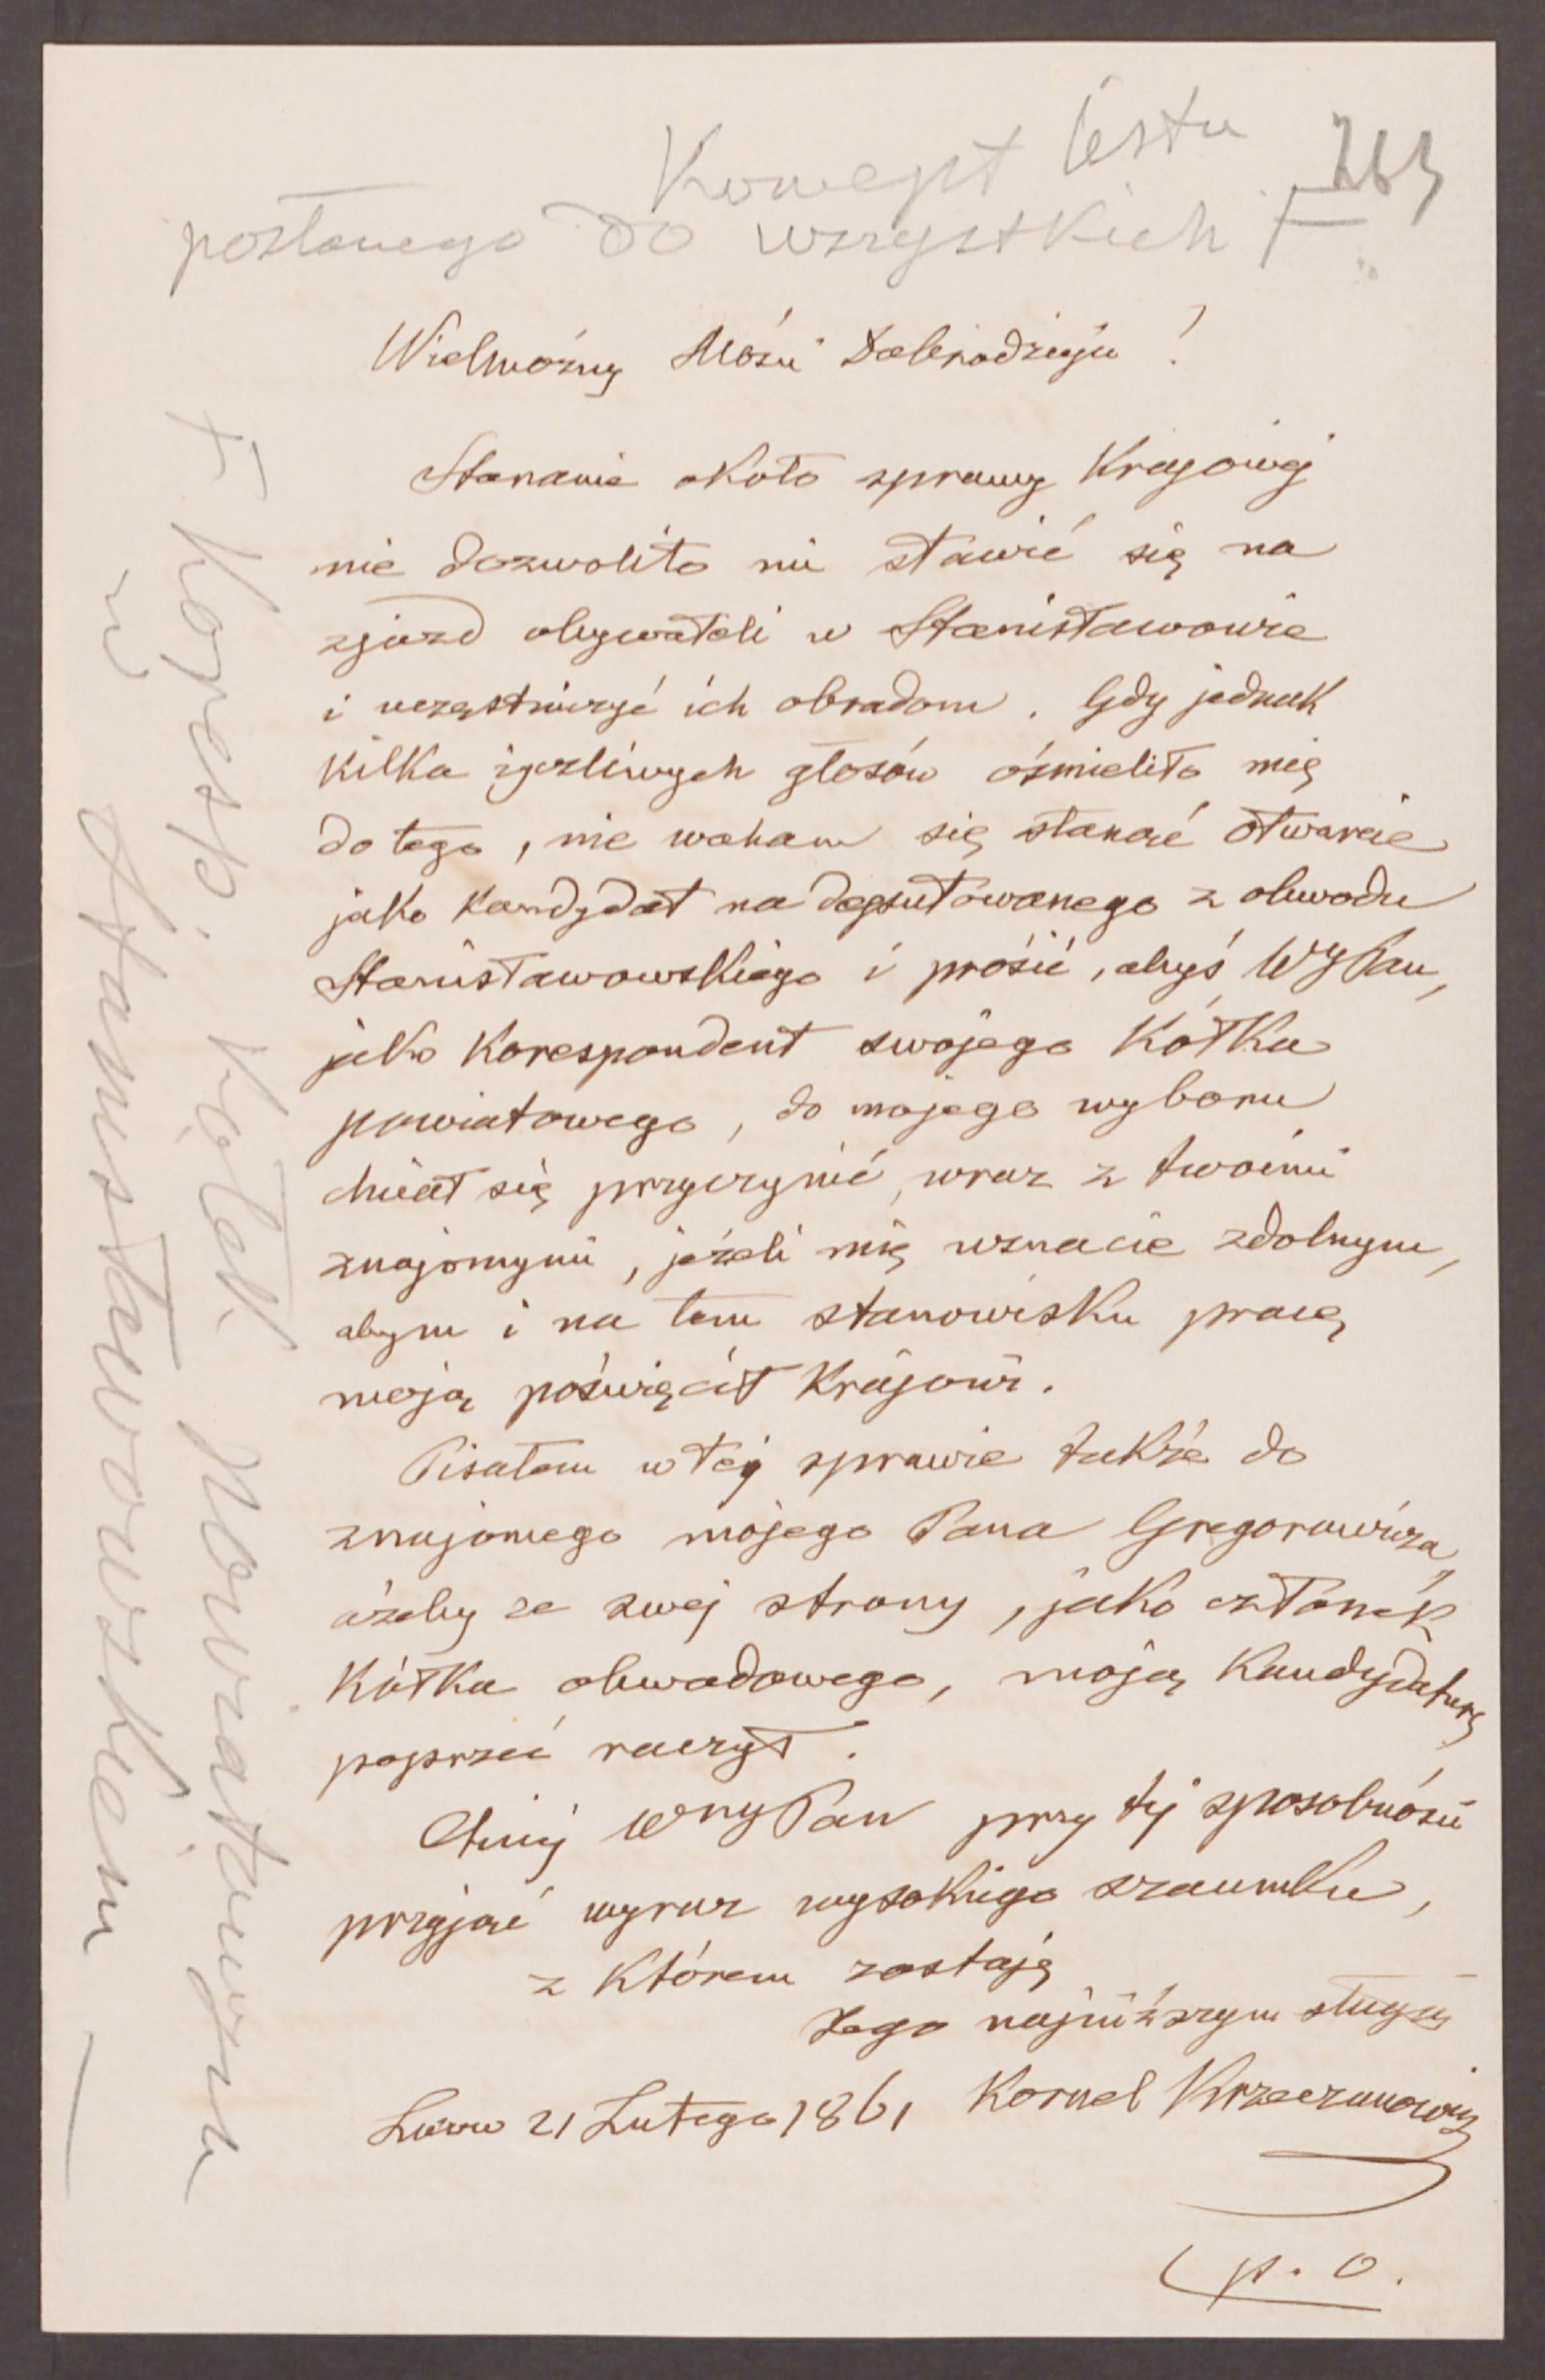 Koncept listu
posłanego do wszystkich F
Wielmożny Mości Dobrodzieju!
Staranie około sprawy Krajowej
nie dozwoliło mi stawić się na
zjazd obywateli w Stanisławowie
i uczęstniczyć ich obradom. Gdy jednak
kilka życzliwych głosów ośmieliło mię
do tego, nie waham się stanąć otwarcie
jako kandydat na deputowanego z obwodu
Stanisławowskiego i prosić, abyś WyPan,
jako korespondent swojego Kółka
powiatowego, do mojego wyboru
chciał się przyczynić, wraz z twoimi
znajomymi, jeżeli mię uznacie zdolnym,
abym i na tem stanowisku pracę
moją poświęcił Krajowi.
Pisałem w tej sprawie także do
znajomego mojego Pana Gregorowicza,
ażeby ze swej strony, jako członek
Kółka obwodowego, moją Kandydaturę
poprzeć raczył.
Chciej WnyPan przy tej sposobności
przyjąć wyraz wysokiego szacunku,
z którem zostaję
Jego najniższym sługą
Lwów 21 Lutego 1861 Kornel Krzeczunowicz
p. o.
F Koresp. Kółek Powiatowym
w Stanisławowskiem